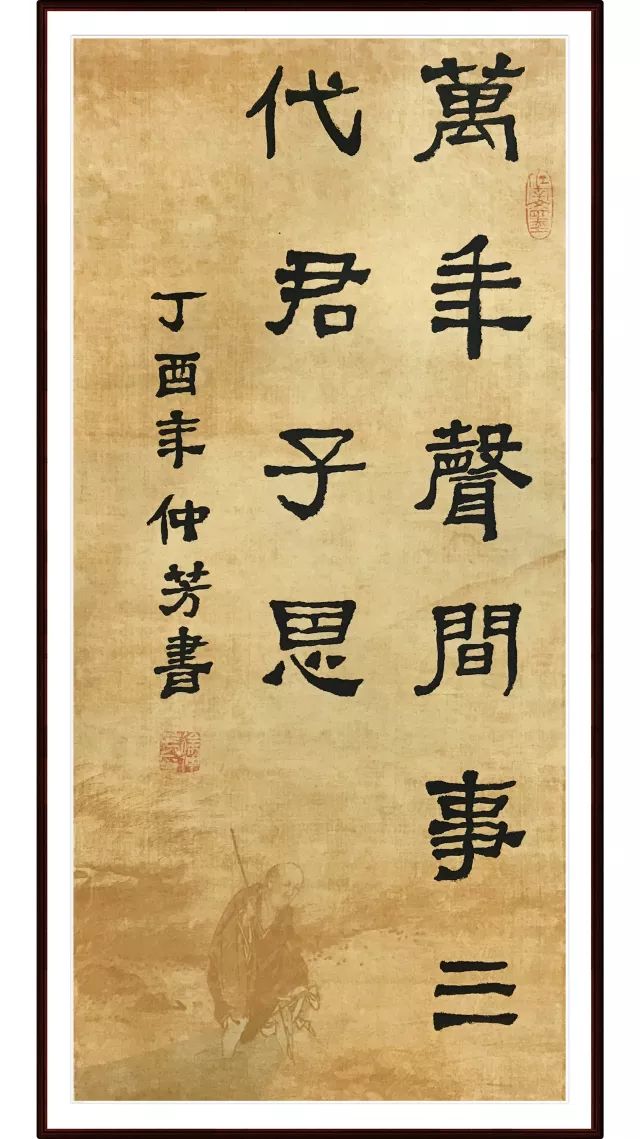 萬年聲間事三
代君子思
丁酉年仲芳書